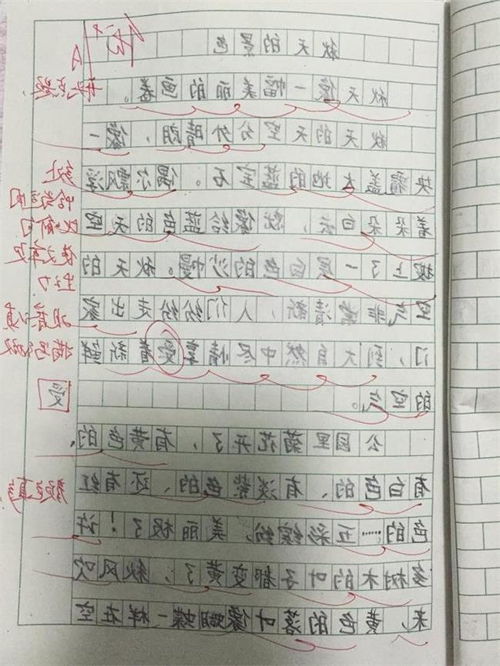 秋天的景色
秋天像一幅美丽的画卷。
秋天的天空分外晴朗，像一
块覆盖大地的蓝宝石。偶尔飘浮
着朵朵白云，就像给蓝色的天空
披上了一层白色的沙幔。秋天的
空气非常清新，人们纷纷走出家
门，到大自然中尽情享受着新鲜
的空气。
受
公园里菊花开了，有黄色的，
有白色的、有淡紫色的、还有红
色的……五彩缤纷，美丽极了！许
多树木的叶子都变黄了；秋风吹
来，黄色的落叶像蝴蝶一样在空